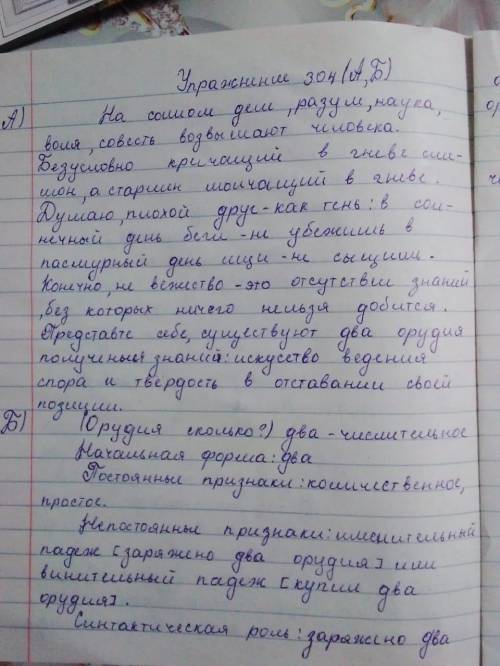 Упражнение 304 (А, Б)
А) На самом деле, разум, наука,
воля, совесть возвышают человека.
Безусловно кричащий в гневе сме-
шон, а страшен молчащий в гневе.
Думаю, плохой друг - как тень: в сол-
нечный день беги - не убежишь в
пасмурный день ищи - не сыщишь.
Конечно, не вежество - это отсутствии знаний
, без которых ничего нельзя добится.
Представте себе, существуют два орудия
полученыя знаний: искусство ведения
спора и твёрдость в отставании своей
позиции.
Б) (Орудия сколько?) два - числительное
Начальная форма: два
Постоянные признаки: количественное,
простое.
Непостоянные признаки: именительный
падеж [заряжено два орудия] или
винительный падеж [купили два
орудия].
Синтактическая роль: заряжено два